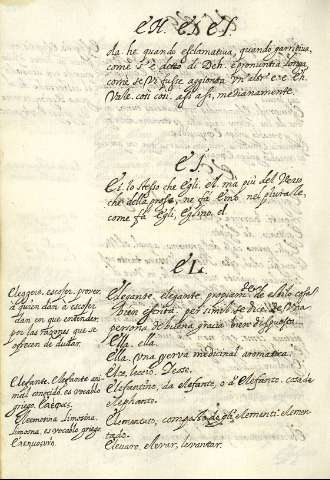 EH. EI. EI.
da he quando esclamatiua, quando garritiua,
come s'è detto di Deh. è pronontia longa,
come se vi fusse aggionta vn' altr' e
Vale. cosi cosi, assi assi, medianamente.
EI
Ei. lo stesso che Egli. el. ma più del Verso
che della prosa, ne fa Eino nel plurale,
come fa Egli, Eglino. el
EL
Elegante. elegante. propiamente de estilo cosa
bien escrita, per simil. se dice de vna
persona de buena gracia bien dispuesta.
Ella. ella
Ella. vna yerva medicinal aromatica.
Elefantino, da elefante, o d'Elefanto. cosa de
elephante.
Elementato, composto de gli elementi. elemen-
tado.
Eleuare, elevar, levantar.
Eleggere, escoger,
a quien dan a escoger
dan en que entender
por las razones que se
ofrecen de dudar.
Elefante. Elefante ani-
mal conocido. es vocablo
griego.
Eleemosina. Limosina.
Limosna. es vocablo griego